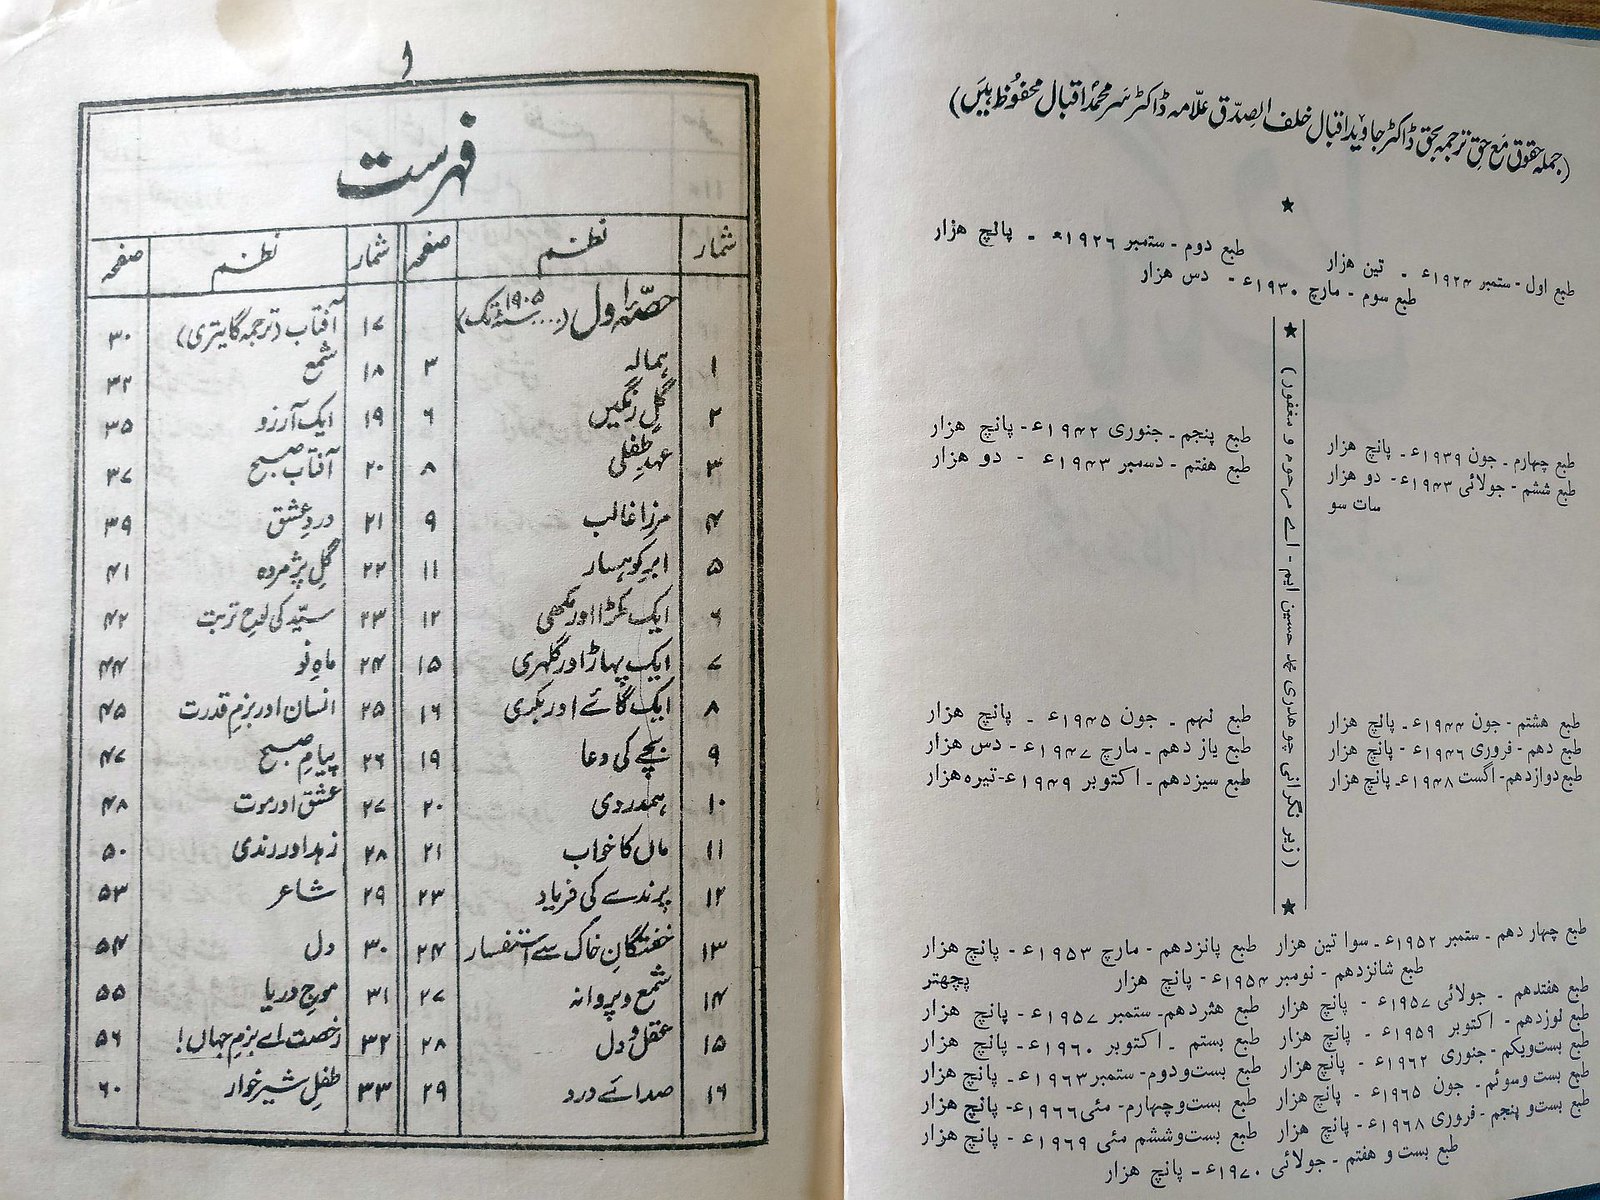 (جملہ حقوق مع حقِ ترجمہ بحق ڈاکٹر جاوید اقبال خلف الصدق علامہ ڈاکٹر سر محمد اقبال محفوظ ہیں)
طبع اول - ستمبر ۱۹۲۴ء - تین ہزار طبع دوم - ستمبر ۱۹۲۶ء - پانچ ہزار
طبع سوم - مارچ ۱۹۳۰ء - دس ہزار
(زیر نگرانی چوھدری محمد حسین ایم - اے مرحوم و مغفور)
طبع چہارم - جون ۱۹۳۹ء - پانچ ہزار طبع پنجم - جنوری ۱۹۴۲ء - پانچ ہزار
طبع ششم - جولائی ۱۹۴۳ء - دو ہزار سات سو طبع ہفتم - دسمبر ۱۹۴۳ء - دو ہزار
طبع ہشتم - جون ۱۹۴۴ء - پانچ ہزار طبع نہم - جون ۱۹۴۵ء - پانچ ہزار
طبع دہم - فروری ۱۹۴۶ء - پانچ ہزار طبع یازدھم - مارچ ۱۹۴۷ء - دس ہزار
طبع دوازدھم - اگست ۱۹۴۸ء - پانچ ہزار طبع سیزدھم - اکتوبر ۱۹۴۹ء - تیرہ ہزار
طبع چہار دھم - ستمبر ۱۹۵۲ء - سوا تین ہزار طبع پانزدھم - مارچ ۱۹۵۳ء - پانچ ہزار پچھتر
طبع شانزدھم - نومبر ۱۹۵۴ء - پانچ ہزار
طبع ہفتدھم - جولائی ۱۹۵۷ء - پانچ ہزار طبع ھژدھم - ستمبر ۱۹۵۷ء - پانچ ہزار
طبع نوزدھم - اکتوبر ۱۹۵۹ء - پانچ ہزار طبع بستم - اکتوبر ۱۹۶۰ء - پانچ ہزار
طبع بست‌ویکم - جنوری ۱۹۶۲ء - پانچ ہزار طبع بست‌ودوم - ستمبر ۱۹۶۳ء - پانچ ہزار
طبع بست وسوئم - جون ۱۹۶۵ء - پانچ ہزار طبع بست‌وچہارم - مئی ۱۹۶۶ء - پانچ ہزار
طبع بست‌و پنجم - فروری ۱۹۶۸ء - پانچ ہزار طبع بست‌وششم مئی ۱۹۶۹ء - پانچ ہزار
طبع بست و ھفتم - جولائی ۱۹۷۰ء - پانچ ہزار
۱
فہرست
شمار نظم صفحہ شمار نظم صفحہ
حصّہ اول (....۱۹۰۵ء تک) ۱۷ آفتاب (ترجمہ گایتری) ۳۰
۱ ہمالہ ۳ ۱۸ شمع ۳۲
۲ گلِ رنگیں ۶ ۱۹ ایک آرزو ۳۵
۳ عہدِ طفلی ۸ ۲۰ آفتابِ صبح ۳۷
۴ مرزا غالب ۹ ۲۱ دردِ عشق ۳۹
۵ ابرِ کوہسار ۱۱ ۲۲ گلِ پژمردہ ۴۱
۶ ایک مکڑا اور مکھی ۱۲ ۲۳ سیّد کی لوحِ تربت ۴۲
۷ ایک پہاڑ اور گلہری ۱۵ ۲۴ ماہِ نو ۴۴
۸ ایک گائے اور بکری ۱۶ ۲۵ انسان اور بزمِ قدرت ۴۵
۹ بچے کی دعا ۱۹ ۲۶ پیامِ صبح ۴۷
۱۰ ہمدردی ۲۰ ۲۷ عشق اور موت ۴۸
۱۱ ماں کا خواب ۲۱ ۲۸ زہد اور رندی ۵۰
۱۲ پرندے کی فریاد ۲۳ ۲۹ شاعر ۵۳
۱۳ خفتگانِ خاک سے استفسار ۲۴ ۳۰ دل ۵۴
۱۴ شمع و پروانہ ۲۷ ۳۱ موجِ دریا ۵۵
۱۵ عقل و دل ۲۸ ۳۲ رخصت اے بزمِ جہاں! ۵۶
۱۶ صدائے درد ۲۹ ۳۳ طفلِ شیرخوار ۶۰